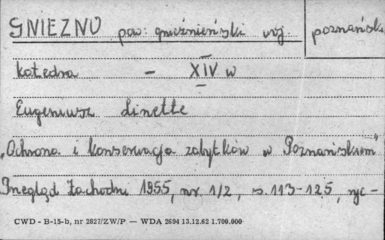 GNIEZNO pow: gnieźnieński woj. poznański
katedra – XIV w
Eugeniusz Linette
„Ochrona i konserwacja zabytków w Poznańskiem"
Przegląd Zachodni 1955, nr. 1/2, s. 113-125, ryc-
CWD - B-15-b, nr 2827/ZW/P — WDA 2694 13.12.62 1.700.000